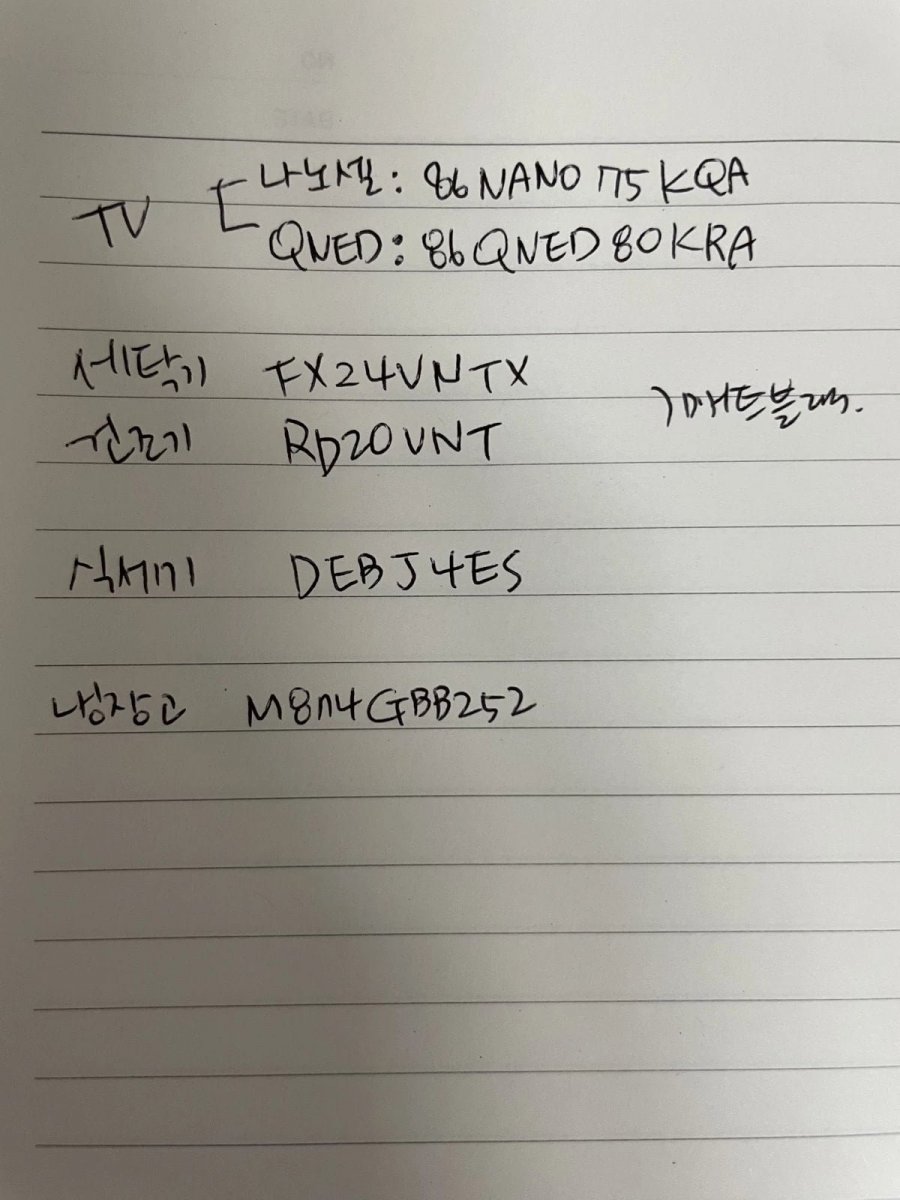 TV
나노셀: 86NANO75KQA
QNED: 86QNED80KRA
세탁기 FX24VNTX
건조기 RD20VNT
)매트블랙.
식세기 DEBJ4ES
냉장고 M874GBB252